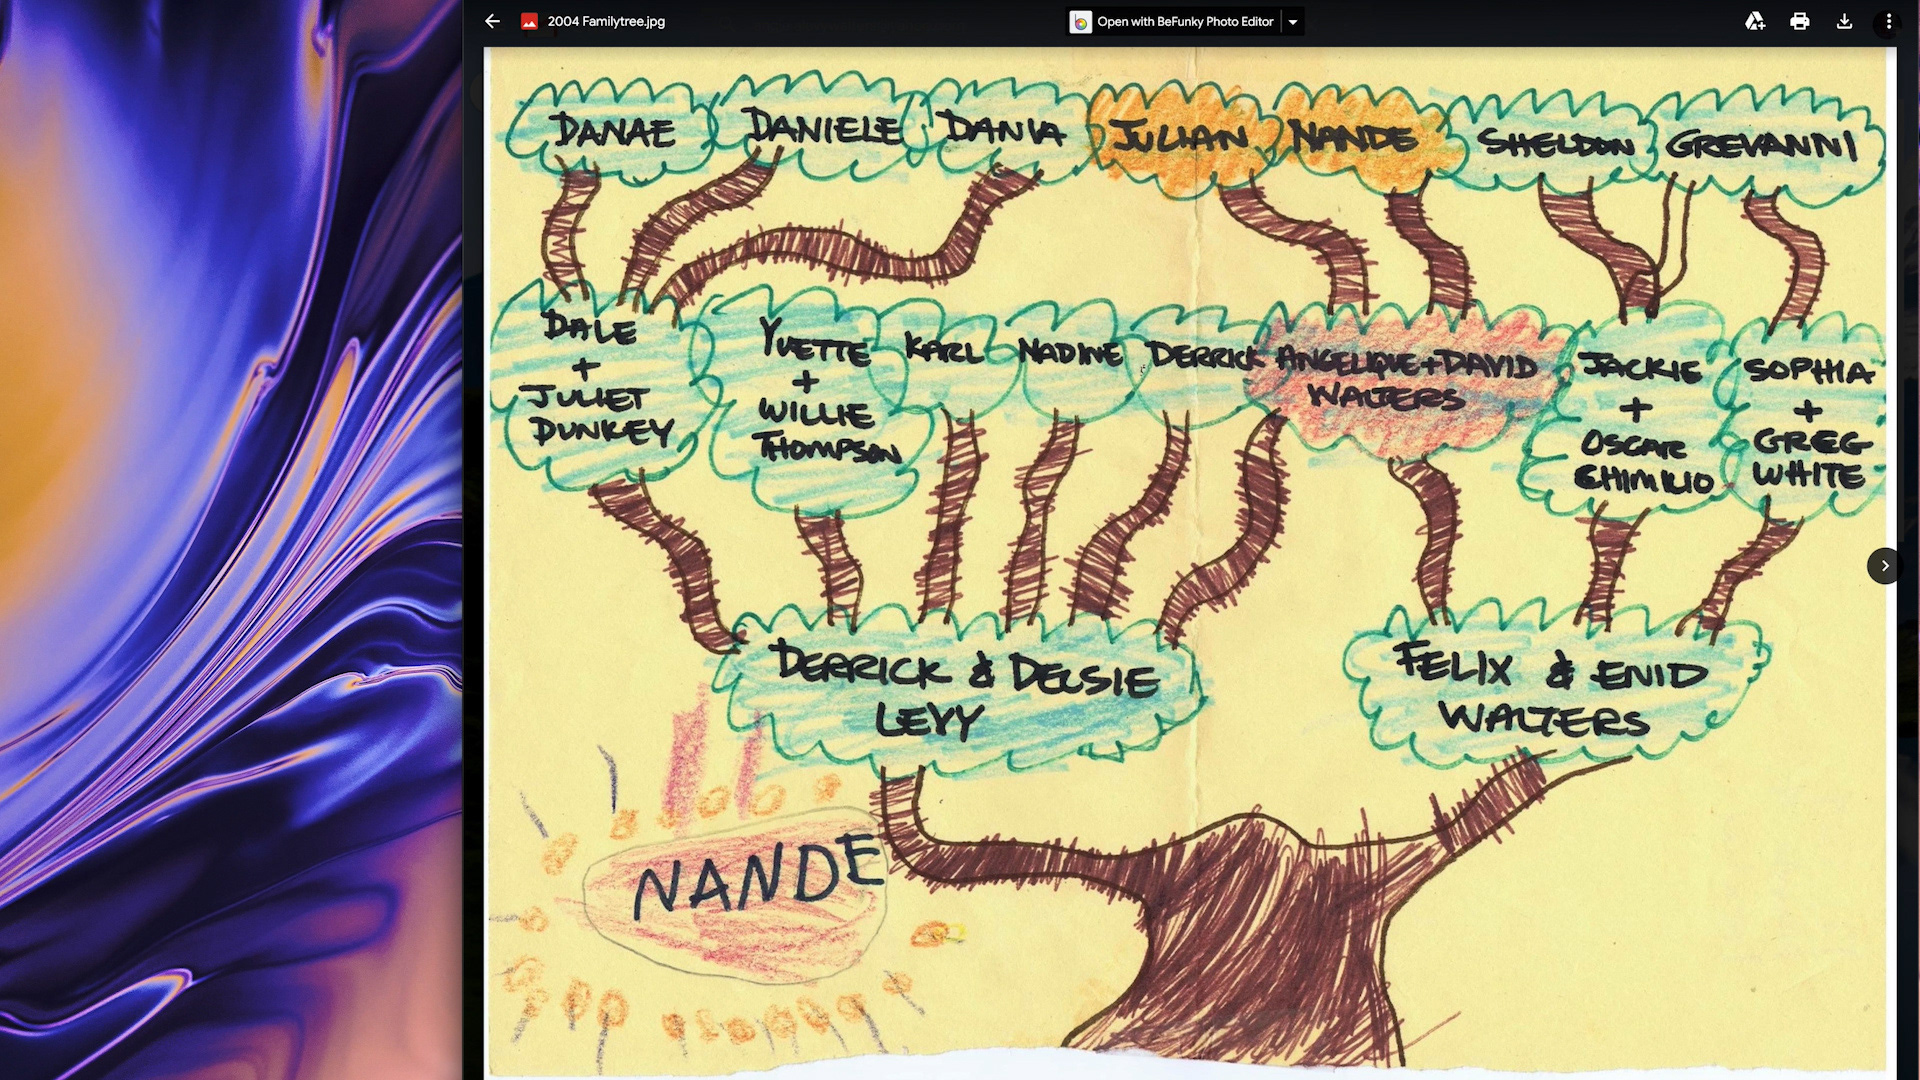 2004 Familytree.jpg
Open with BeFunky Photo Editor
DANAE
DANIELE
DANIA
JULIAN
NANDE
SHELDON
GREVANNI
DALE
+
JULIET
DUNKEY
YVETTE
+
WILLIE
THOMPSON
KARL
NADINE
DERRICK
ANGELIQUE+DAVID
WALTERS
JACKIE
+
OSCAR
CHIMILIO
SOPHIA
+
GREG
WHITE
DERRICK & DELSIE
LEVY
FELIX & ENID
WALTERS
NANDE